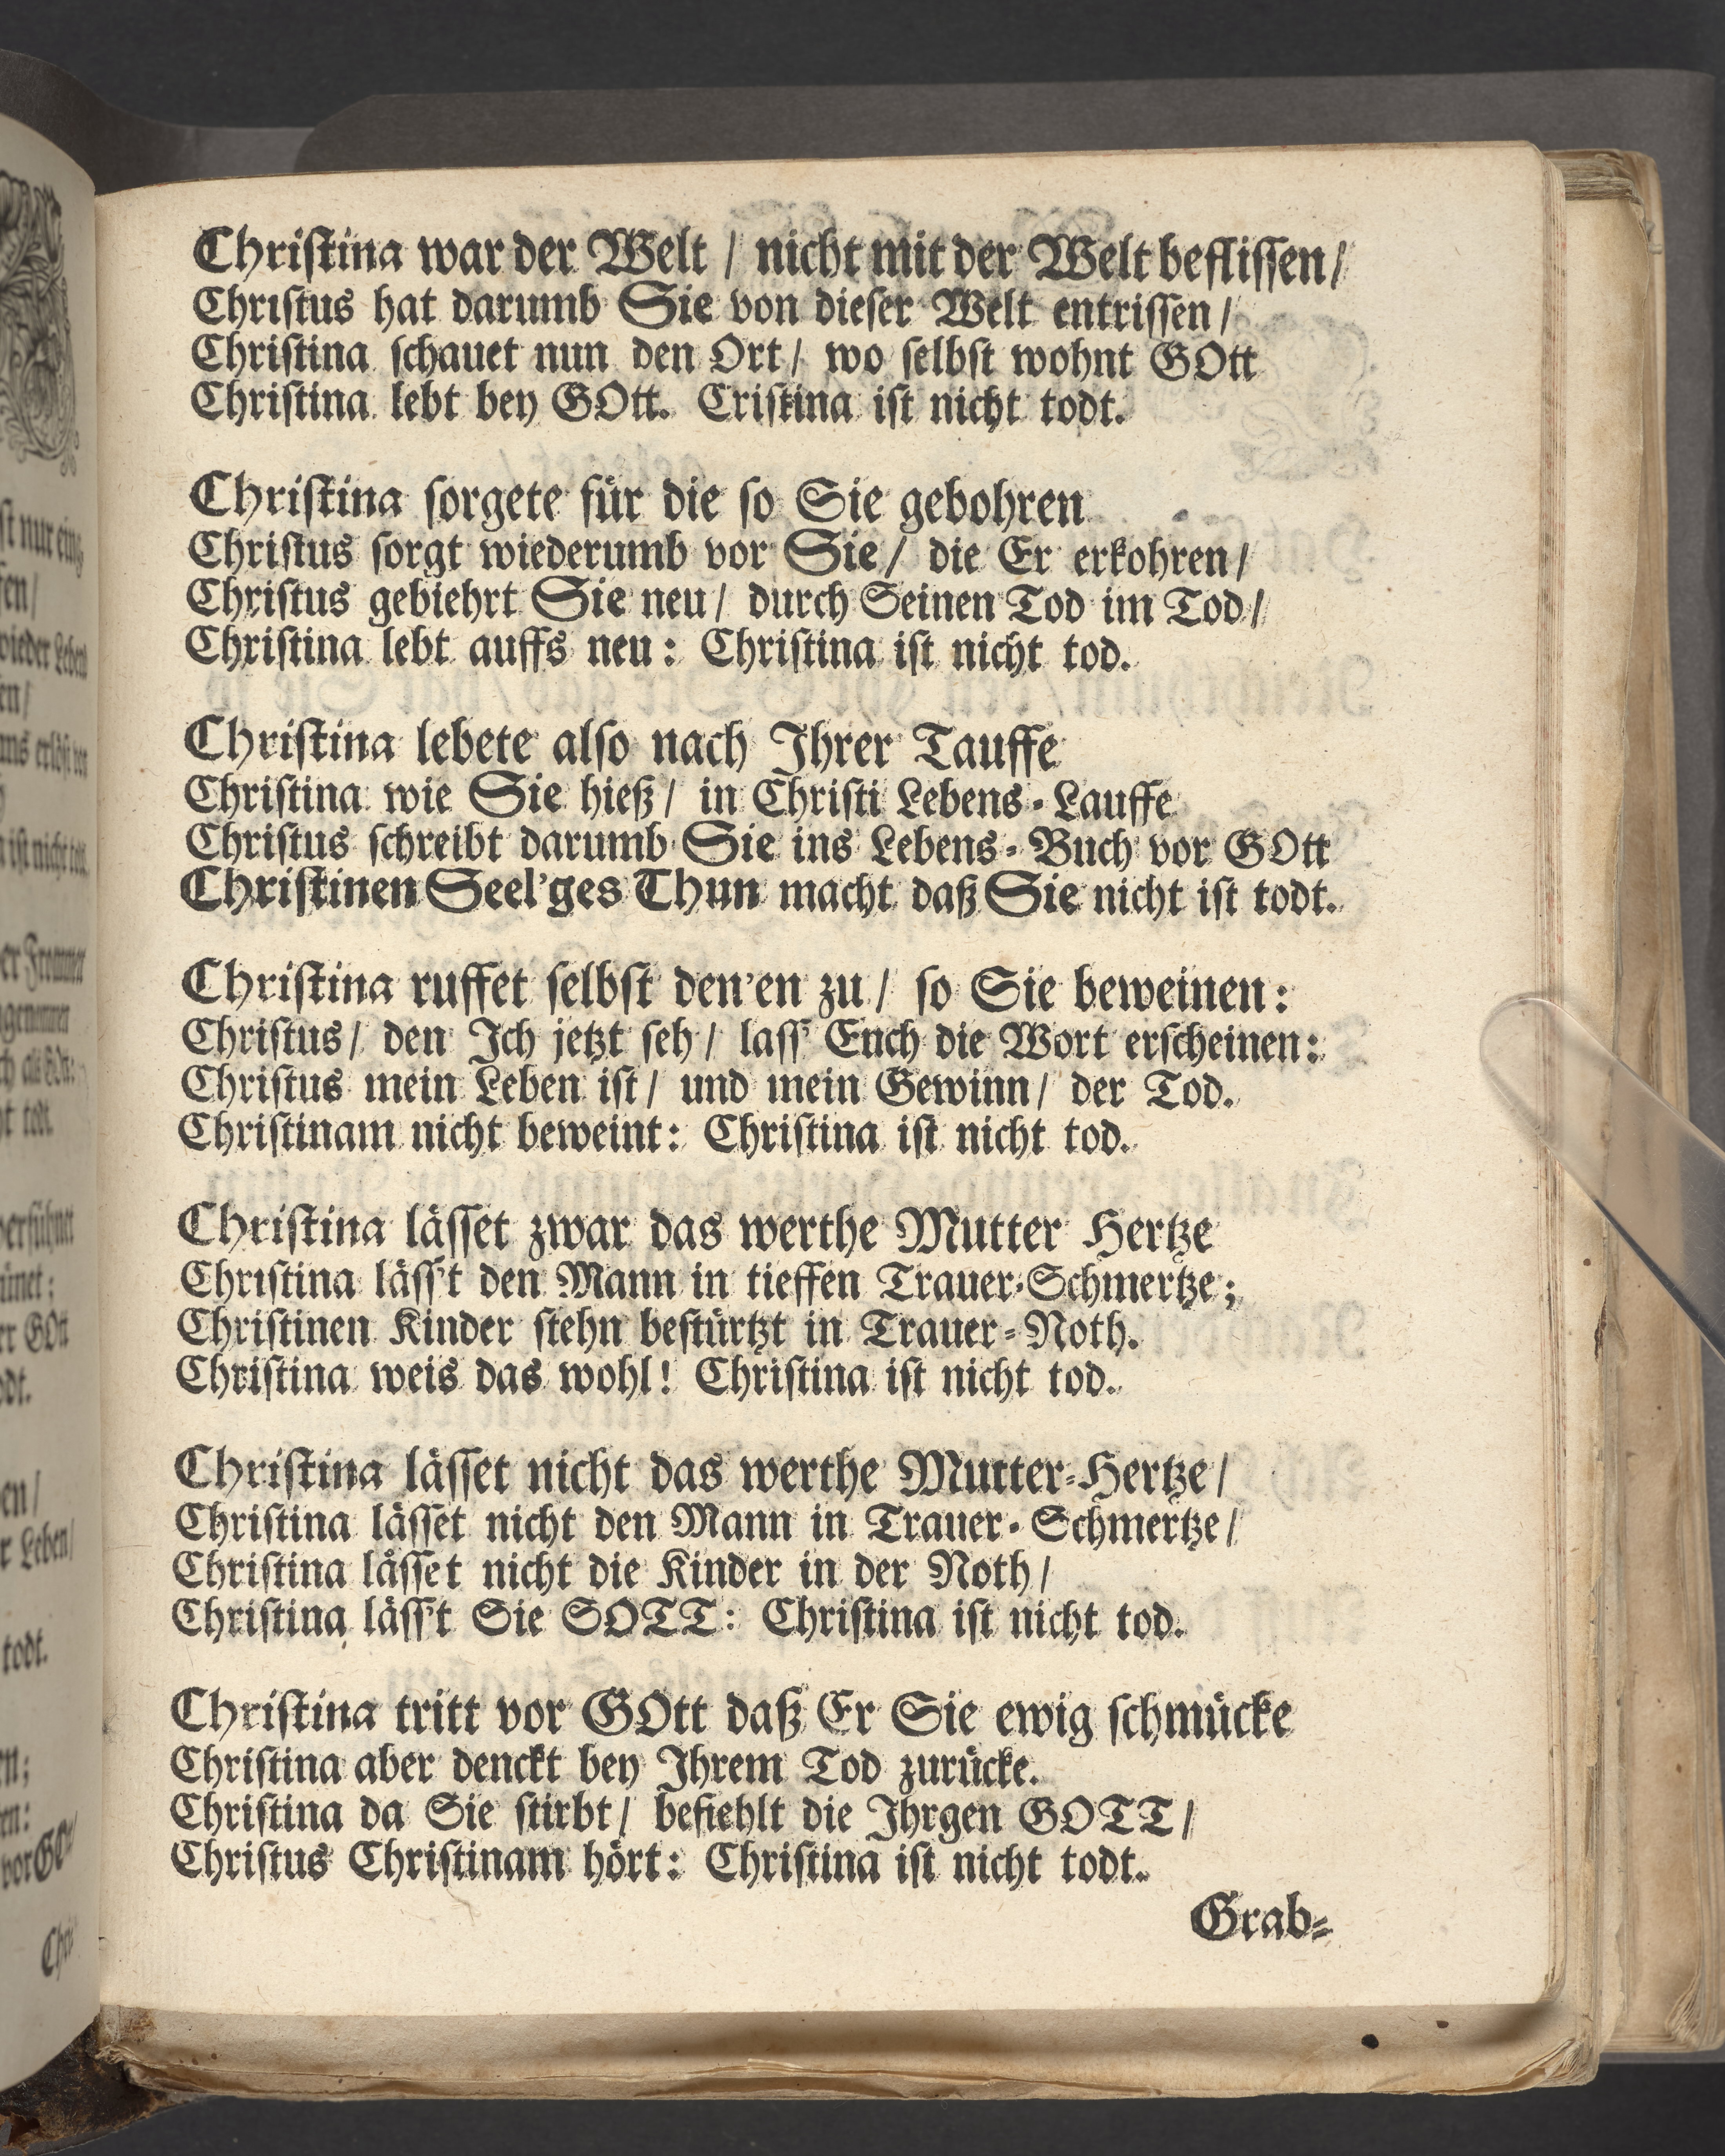 Christina war der Welt / nicht mit der Welt beflissen /
Christus hat darumb Sie von dieser Welt entrissen /
Christina schauet nun den Ort / wo selbst wohnt GOtt
Christina lebt bey GOtt. Cristina ist nicht todt.
Christina sorgete für die so Sie gebohren
Christus sorgt wiederumb vor Sie / die Er erkohren /
Christus gebiehrt Sie neu / durch Seinen Tod im Tod /
Christina lebt auffs neu: Christina ist nicht tod.
Christina lebete also nach Ihrer Tauffe
Christina wie Sie hieß / in Christi Lebens-Lauffe
Christus schreibt darumb Sie ins Lebens-Buch vor GOtt
Christinen Seel'ges Thun macht daß Sie nicht ist todt.
Christina ruffet selbst den'en zu / so Sie beweinen:
Christus / den Ich jetzt seh / lass' Ench die Wort erscheinen:
Christus mein Leben ist / und mein Gewinn / der Tod.
Christinam nicht beweint: Christina ist nicht tod.
Christina lässet zwar das werthe Mutter Hertze
Christina läss't den Mann in tieffen Trauer-Schmertze;
Christinen Kinder stehn bestürtzt in Trauer-Noth.
Christina weis das wohl! Christina ist nicht tod.
Christina lässet nicht das werthe Mutter-Hertze /
Christina lässet nicht den Mann in Trauer-Schmertze /
Christina låsset nicht die Kinder in der Noth /
Christina läss't Sie SOTT: Christina ist nicht tod.
Christina tritt vor GOtt daß Er Sie ewig schmücke
Christina aber denckt bey Ihrem Tod zurücke.
Christina da Sie stirbt / befiehlt die Ihrgen GOTT /
Christus Christinam hört: Christina ist nicht todt.
Grab-